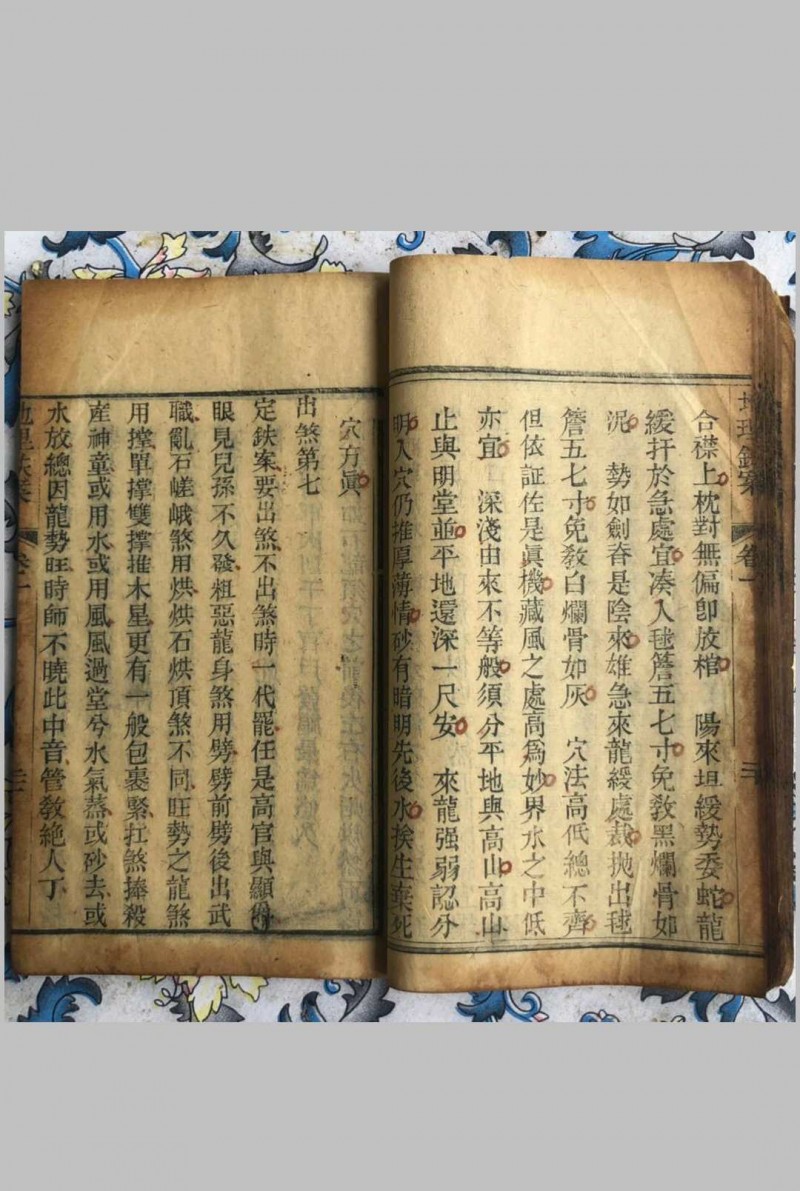 地理鉄案 卷一 三
合襟上枕對無偏卽放棺 陽來坦緩勢委蛇龍
緩扦於急處宜湊入毬簷五七寸免敎黑爛骨如
泥 勢如劍脊是陰來雄急來龍緩處裁抛出毬
簷五七寸免敎白爛骨如灰 穴法高低總不齊
但依証佐是眞機藏風之處高爲妙界水之中低
亦宜 深淺由來不等般須分平地與高山高山
止與明堂並平地還深一尺安 來龍强弱認分
明入穴仍推厚薄情砂有暗明先後水挨生棄死
穴方眞
出煞第七
定鈇案要出煞不出煞時一代罷任是高官與顯
眼見兒孫不久發粗惡龍身煞用劈劈前劈後出武
職亂石嵯峨煞用烘烘石烘頂煞不同旺勢之龍煞
用撑單撑雙撑推木星更有一般包裹緊扛煞捧殺
産神童或用水或用風風過堂兮水氣蒸或砂去或
水放總因龍勢旺時師不曉此中音管敎絶人丁
卷一